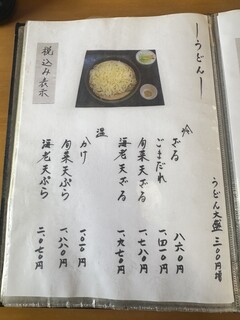 ｜うどん｜
税込み表示
冷
ざる 八六〇円
ごまだれ 一、〇一〇円
旬菜天ざる 一、七八〇円
海老天ざる 一、九七〇円
温
かけ 一、〇一〇円
旬菜天ぷら 一、八八〇円
海老天ぷら 二、〇七〇円
うどん大盛 三〇〇円増